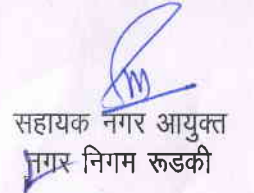 सहायक नगर आयुक्त
नगर निगम रूडकी